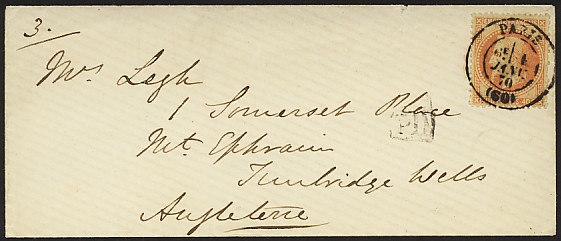 3.
PARIS
JANV.
70
(60)
Mrs Legh
1 Somerset Place
PD
Mt. Ephraim
Tunbridge Wells
Angleterre